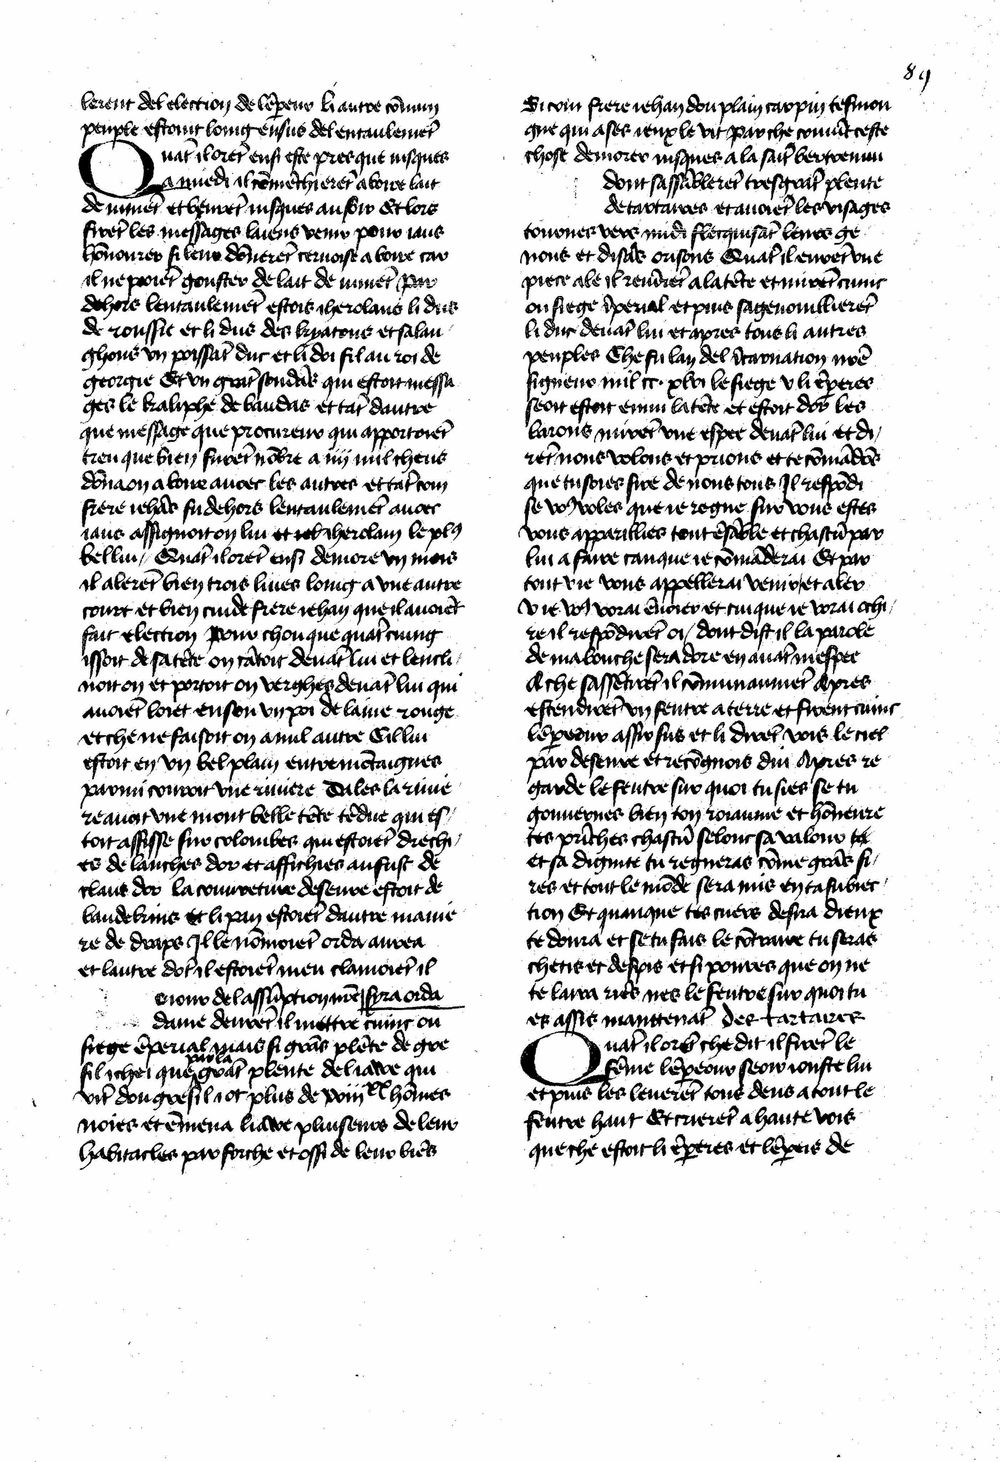 89
lerent del election de lẽpeur li autre cõmun
peuple estoiẽt loing ensus del entaulemẽt
Quãt il orẽt ensi este pres que iusques
a miedi il cõmẽchierẽt a boire lait
de iumẽt et burẽt iusques au soir Et lors
firẽt les messages laiens venir pour iaus
hõnourer si leur dõnerẽt cervoise a boire car
il ne porẽt gouster de lait de iumẽt Par
dehors lentaulemẽt estois iherolaus li dus
de roussie et li dus des kitatous et salan-
ghous un poissãt duc et li doi fil au roi de
georgie Et un grãt soudãs qui estoit messa
ges le kaliphe de baudas et tãt dautre
que message que procureur qui apportoiẽt
treu que bien furẽt nõbre a iiij mil cheus
dõna on a boire avoec les autres et tãt com
frere iehãs fu dehors lentaulemẽt avoec
iaus assignoit on lui et iherolaus le plꝯ
bel liu Quãt il orẽt ensi demore un mois
il alerẽt bien trois liues loing a une autre
court et bien cuide frere iehan que il avoiẽt
fait election Pour chou que quãt cuing
issoit de sa tẽte on cãtoit devãt lui et lencli-
noit on et portoit on verghes devãt lui qui
avoiẽt loiet en son un poi de laine rouge
et che ne faisoit on a nul autre Cil liu
estoit en un bel plain entre mõtaignes
parmi couroit une riuiere Dales la riuie
re avoit une mout belle tẽte tẽdue qui es-
toit assisse sur colombes qui estoiẽt drechi-
es de lauches dor et affichies au fust de
claus dor la couverture deseure estoit de
baudekins et li pan estoiẽt dautre manie
re de draps Il le nõmoiẽt orda aurea
et lautre dõt il estoiẽt meu clamoiẽt il
syra orda
e iour de lassũption nr̃e
dame deurẽt il mettre cuinc ou
siege ẽperial mais si grãs plẽte de gre
sil i cheï que par la grãt plente de liawe qui
vĩt dou gresil i ot plus de viij xx hõmes
noies et ẽmena liawe pluiseurs de leur
habitacles par forche et ossi de leur biẽs
Si com frere iehan dou plain carpin tesmon
gne qui a ses ieux le vit par che covĩt ceste
chose demorer iusques a la saĩt bertremiu
dont sassãblerẽt tresgrãt plente
de tartaires et avoiẽt les visages
tournes vers midi flecquisãt leurs ge
nous et disãs orisons Quãt il eurẽt une
piece ale il revĩrẽt a la tẽte et mirẽt cuinc
ou siege ĩperial et puis sagenouillierẽt
li duc devãt lui et apres tous li autres
peuples Che fu lan del ĩcarnation nr̃e
signeur mil cc. xlvi le siege u li ẽperes
seoit estoit enmi la tẽte et estoit dor les
barons mirẽt une espee devãt lui et di-
rẽt nous volons et prions et te cõmãdõs
que tu soies sire de nous tous Il respõdi
se vꝯ voles que ie regne sur vous estes
vous apparillies tout ẽsãble et chascũ par
lui a faire canque ie cõmãderai Et par
tout u ie vous appellerai venir et aler
u ie vꝯ vorai ẽvoier et cui que ie vorai ochi-
re il respõdirẽt oi dont dist il la parole
de ma bouche sera dore en avãt mespee
A che sassẽtirẽt il cõmunaumẽt Apres
estendirẽt un feutre a terre et firent cuinc
lẽpeour assir sus et li dirẽt vois le ciel
par deseure et recõgnois diu Apres re
garde le feutre sur quoi tu sies se tu
gouvernes bien ton roiaume et hõneure
tes prĩches chascũ selonc sa valour
et sa dignite tu regneras cõme grãs si-
res et tout le mõde sera mis en ta subiec-
tion Et quanque tes cuers desira dieux
te donra et se tu fais le cõtraire tu seras
chetis et despis et si poures que on ne
te laira riẽs nes le feutre sur quoi tu
es assis maĩtenãt Des tartaires
Quãt il orẽt che dit il firẽt le
fẽme lẽpeour seoir iouste lui
et puis les leverẽt tous deus a tout le
feutre haut Et crierẽt a haute vois
que che estoit li ẽperes et lẽperis de